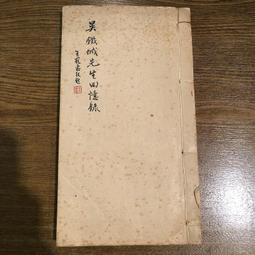 吳鐵城先生回憶錄
王寵惠敬題